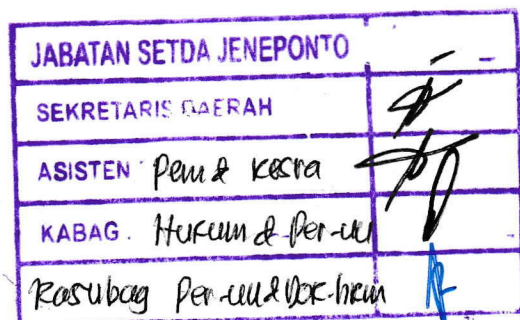 JABATAN SETDA JENEPONTO
SEKRETARIS DAERAH
ASISTEN Pem & Kesra
KABAG. Hukum & Per-uu
Kasubag Per-uu & Dok-hkm